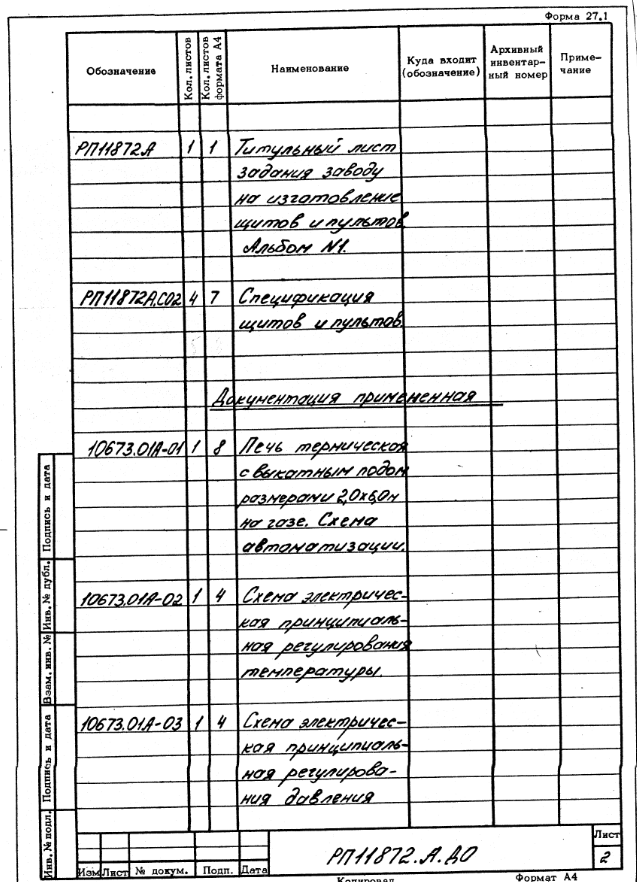 Форма 27.1
Обозначение
Кол. листов
Кол. листов формата А4
Наименование
Куда входит (обозначение)
Архивный инвентар- ный номер
Приме- чание
РП11872А 1 1 Титульный лист
задания заводу
на изготовление
щитов и пультов
Альбом N1.
РП11872А.С02 4 7 Спецификация
щитов и пультов
Документация примененная
10673.01А-01 1 8 Печь термическая
с выкатным подом
размерами 2,0х6,0м
на газе. Схема
автоматизации.
10673.01А-02 1 4 Схема электричес-
кая принципиаль-
ная регулирования
температуры.
10673.01А-03 1 4 Схема электричес-
кая принципиаль-
ная регулирова-
ния давления
Подпись и дата
Инв. № дубл.
Взам. инв. №
Подпись и дата
Инв. № подл.
Изм Лист № докум. Подп. Дата
РП11872.А.Д0
Лист
2
Копировал Формат А4